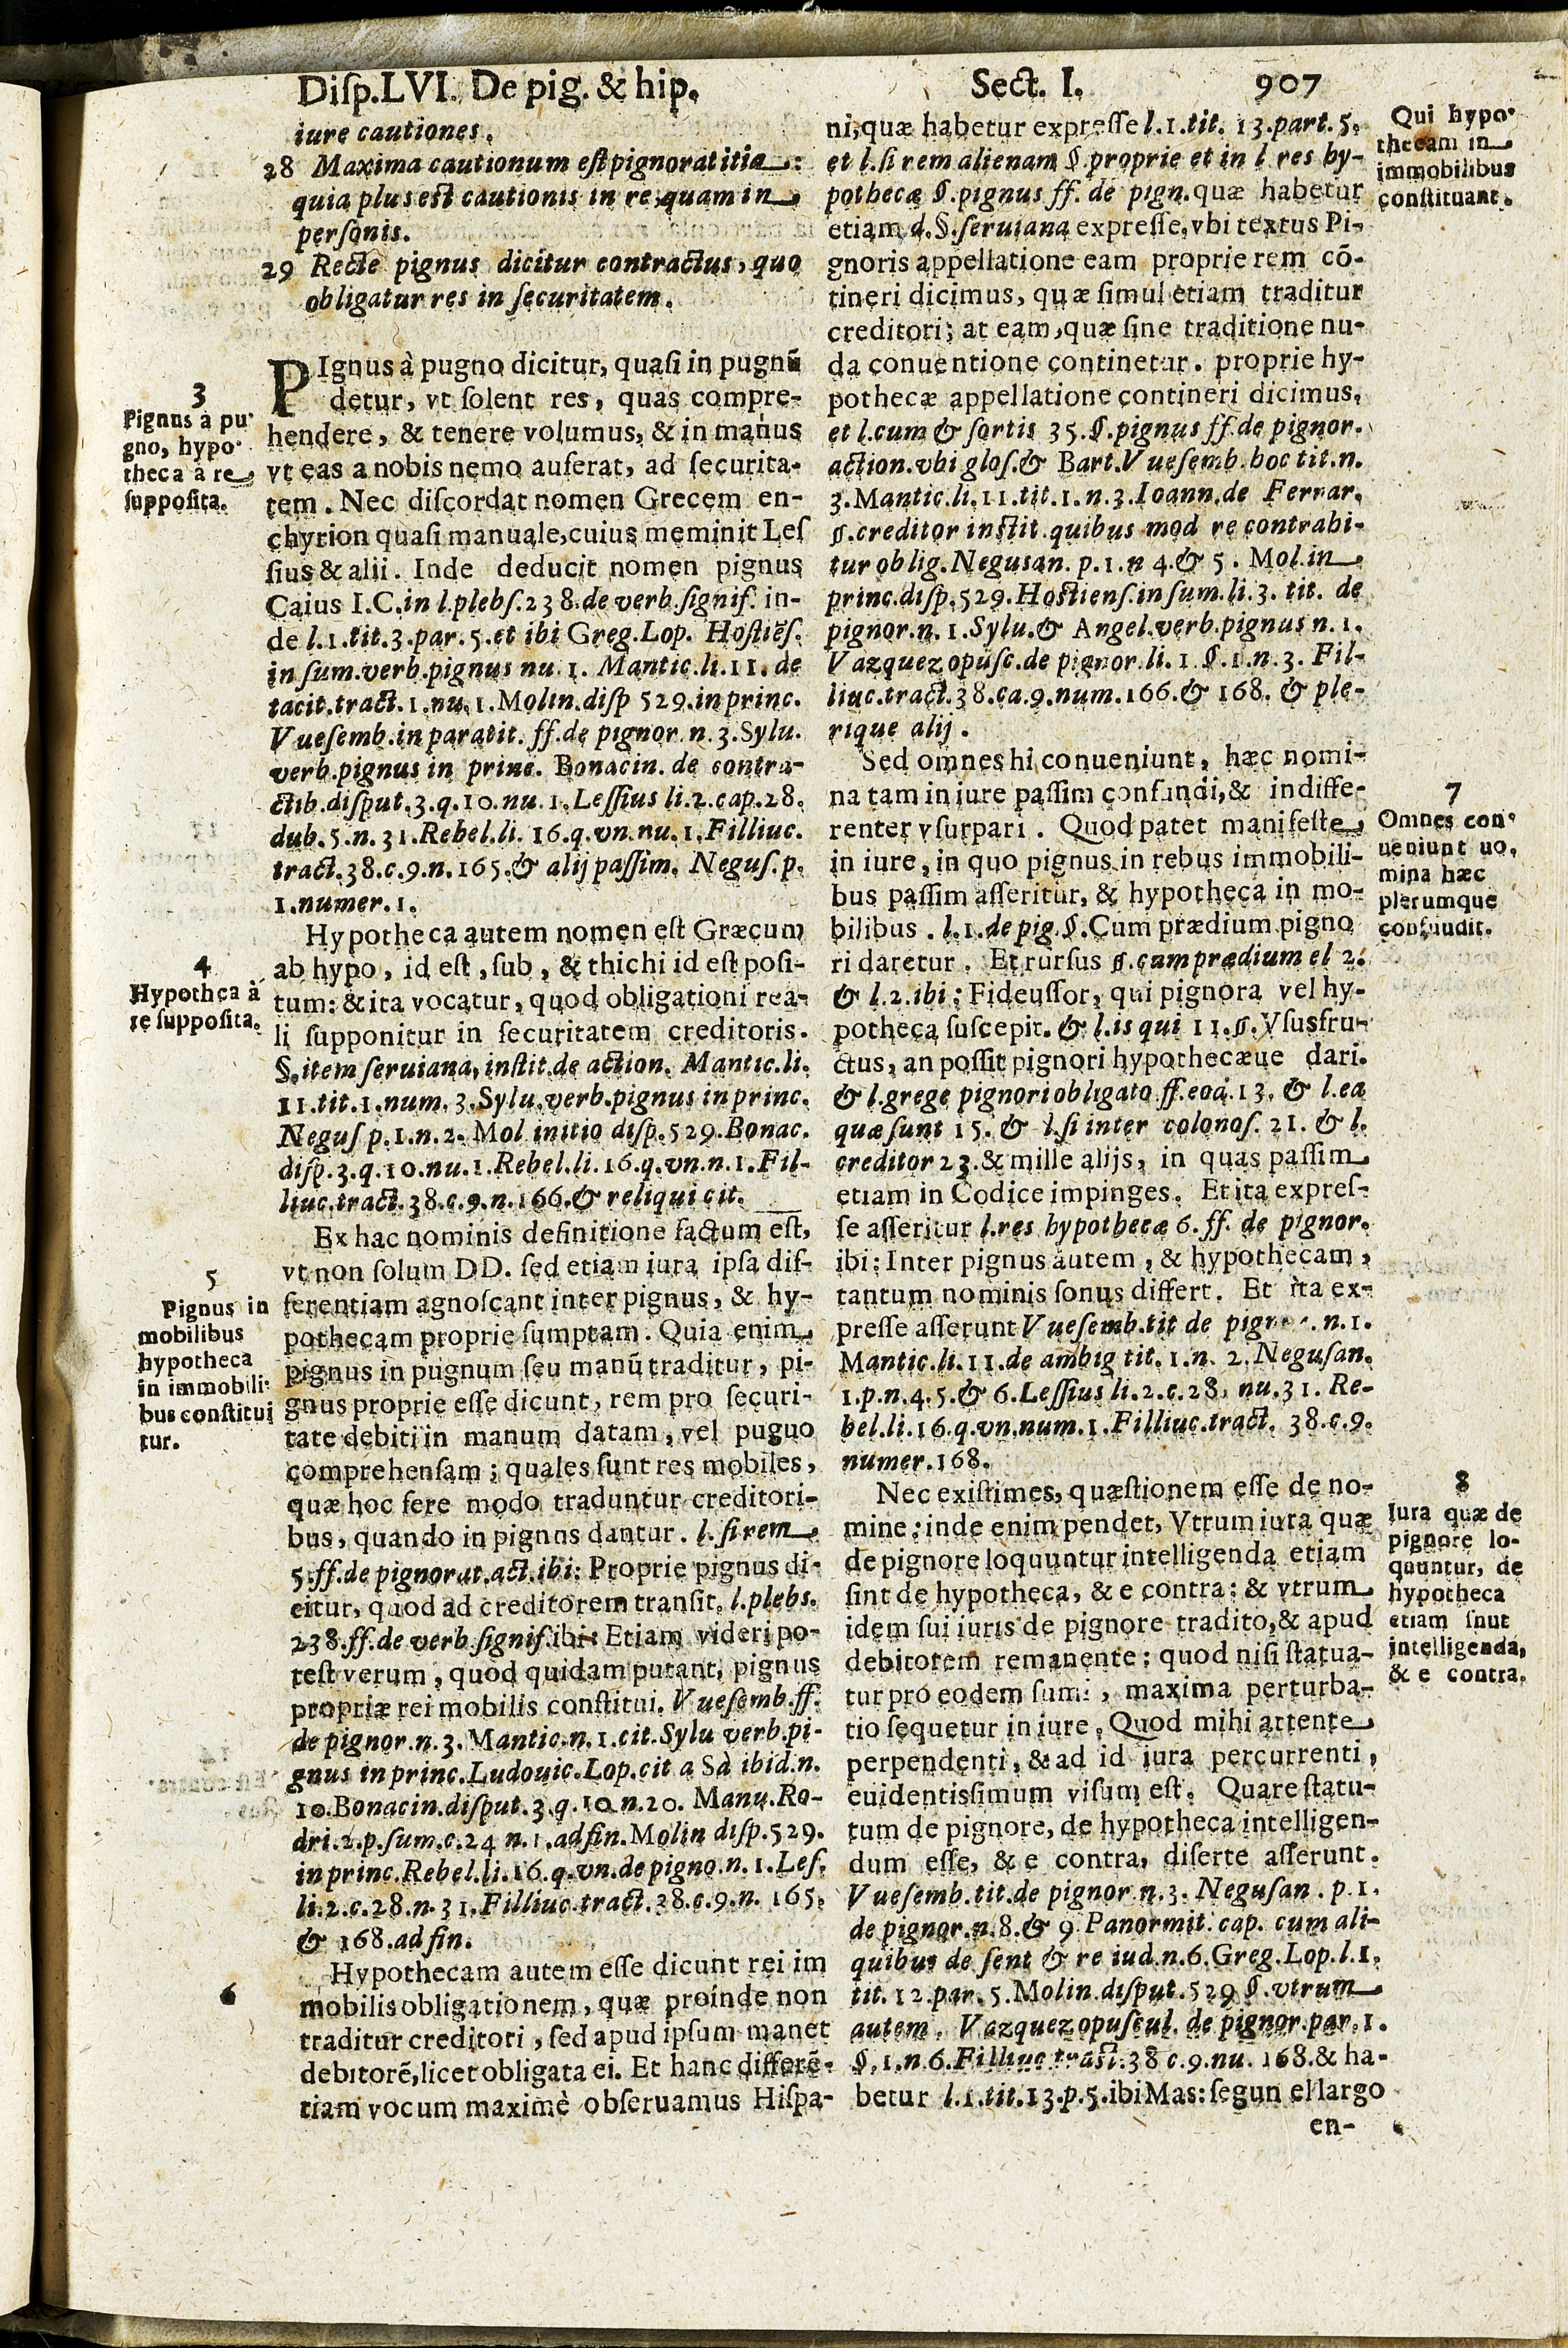 Disp.LVI. De pig. & hip. Sect. I. 907
iure cautiones.
28 Maxima cautionum est pignoratitia:
quia plus est cautionis in re, quam in
personis.
29 Recte pignus dicitur contractus, quo
obligatur res in securitatem.
PIgnus à pugno dicitur, quasi in pugnũ
detur, vt solent res, quas compre-
hendere, & tenere volumus, & in manus
vt eas a nobis nemo auferat, ad securita-
tem. Nec discordat nomen Grecem en-
chyrion quasi manuale, cuius meminit Les
sius & alii. Inde deducit nomen pignus
Caius I.C. in l.plebs.238.de verb.signif. in-
de l.1.tit.3.par.5.et ibi Greg.Lop. Hostiẽs.
in sum.verb.pignus nu.1. Mantic.li.11.de
tacit.tract.1.nu.1.Molin.disp 529.in princ.
Vuesemb.in paratit.ff.de pignor.n.3.Sylu.
verb.pignus in princ. Bonacin. de contra-
ctib.disput.3.q.10.nu.1.Lessius li.2.cap.28.
dub.5.n.31.Rebel.li.16.q.vn.nu.1.Filliuc.
tract.38.c.9.n.165.& alij passim. Negus.p.
1.numer.1.
Hypotheca autem nomen est Græcum
ab hypo, id est, sub, & thichi id est posi-
tum: & ita vocatur, quod obligationi rea-
li supponitur in securitatem creditoris.
§.item seruiana, instit.de action. Mantic.li.
11.tit.1.num.3.Sylu.verb.pignus in princ.
Negus p.1.n.2.Mol initio disp.529.Bonac.
disp.3.q.10.nu.1.Rebel.li.16.q.vn.n.1.Fil-
liuc.tract.38.c.9.n.166.& reliqui cit.
Ex hac nominis definitione factum est,
vt non solum DD. sed etiam iura ipsa dif-
ferentiam agnoscant inter pignus, & hy-
pothecam proprie sumptam. Quia enim
pignus in pugnum seu manũ traditur, pi-
gnus proprie esse dicunt, rem pro securi-
tate debiti in manum datam, vel puguo
comprehensam; quales sunt res mobiles,
quæ hoc fere modo traduntur creditori-
bus, quando in pignus dantur. l.si rem
5.ff.de pignorat.act.ibi: Proprie pignus di-
citur, quod ad creditorem transit. l.plebs.
238.ff.de verb.signif.ibi: Etiam videri po-
test verum, quod quidam putant, pignus
propriæ rei mobilis constitui. Vuesemb.ff.
de pignor.n.3.Mantic.n.1.cit.Sylu verb.pi-
gnus in princ.Ludouic.Lop.cit a Sà ibid.n.
10.Bonacin.disput.3.q.10.n.20. Manu.Ro-
dri.2.p.sum.c.24 n.1.ad fin.Molin disp.529.
in princ.Rebel.li.16.q.vn.de pigno.n.1.Les.
li.2.c.28.n.31.Filliuc.tract.38.c.9.n.165.
& 168.ad fin.
Hypothecam autem esse dicunt rei im
mobilis obligationem, quæ proinde non
traditur creditori, sed apud ipsum manet
debitorẽ, licet obligata ei. Et hanc differẽ-
tiam vocum maximè obseruamus Hispa-
3
Pignus à pu
gno, hypo
theca à re
supposita.
4
Hypothca à
re supposita.
5
Pignus in
mobilibus
hypotheca
in immobili
bus constitui
tur.
6
ni, quæ habetur expresse l.1.tit. 13.part.5.
et l.si rem alienam §.proprie et in l res hy-
pothecæ §.pignus ff. de pign.quæ habetur
etiam d.§.seruiana expresse, vbi textus Pi-
gnoris appellatione eam proprie rem cõ-
tineri dicimus, quæ simul etiam traditur
creditori; at eam, quæ sine traditione nu-
da conuentione continetur. proprie hy-
pothecæ appellatione contineri dicimus,
et l.cum & sortis 35.§.pignus ff.de pignor.
action.vbi glos.& Bart.Vuesemb.hoc tit.n.
3.Mantic.li.11.tit.1.n.3.Ioann.de Ferrar.
§.creditor instit.quibus mod re contrahi-
tur oblig.Negusan.p.1.n 4.& 5. Mol.in
princ.disp.529.Hostiens.in sum.li.3. tit. de
pignor.n.1.Sylu.& Angel.verb.pignus n.1.
Vazquez opusc.de pignor.li.1 §.1.n.3. Fil-
liuc.tract.38.ca.9.num.166.& 168. & ple-
rique alij.
Sed omnes hi conueniunt, hæc nomi-
na tam in iure passim confundi, & indiffe-
renter vsurpari. Quod patet manifeste,
in iure, in quo pignus in rebus immobili-
bus passim asseritur, & hypotheca in mo-
bilibus. l.1.de pig.§.Cum prædium pigno
ri daretur. Et rursus §.cum prædium el 2.
& l.2.ibi: Fideussor, qui pignora vel hy-
potheca suscepit. & l.is qui 11.§.Vsusfru-
ctus, an possit pignori hypothecæue dari.
& l.grege pignori obligato ff.eod.13. & l.ea
quæ sunt 15. & l.si inter colonos. 21. & l.
creditor 23.& mille alijs, in quas passim
etiam in Codice impinges. Et ita expres-
se asseritur l.res hypothecæ 6.ff. de pignor.
ibi: Inter pignus autem, & hypothecam,
tantum nominis sonus differt. Et ita ex-
presse asserunt Vuesemb.tit de n.1.
Mantic.li.11.de ambig tit.1.n.2.Negusan.
1.p.n.4.5.& 6.Lessius li.2.c.28. nu.31. Re-
bel.li.16.q.vn.num.1.Filliuc.tract. 38.c.9.
numer.168.
Nec existimes, quæstionem esse de no-
mine; inde enim pendet, Vtrum iura quæ
de pignore loquuntur intelligenda etiam
sint de hypotheca, & e contra: & vtrum
idem sui iuris de pignore tradito, & apud
debitorem remanente: quod nisi statua-
tur pro eodem sumi, maxima perturba-
tio sequetur in iure. Quod mihi attente
perpendenti, & ad id iura percurrenti,
euidentissimum visum est. Quare statu-
tum de pignore, de hypotheca intelligen-
dum esse, & e contra, diserte asserunt.
Vuesemb.tit.de pignor.n.3. Negusan.p.1.
de pignor.n.8.& 9 Panormit. cap. cum ali-
quibus de sent & re iud.n.6.Greg.Lop.l.1.
tit.12.par.5.Molin.disput.529 §.vtrum
autem. Vazquez opuscul. de pignor.par.1.
§.1.n.6.Filliuc.tract.38 c.9.nu. 168.& ha-
betur l.1.tit.13.p.5.ibi Mas: segun el largo
en-
Qui hypo
thecam in
immobilibus
constituant.
7
Omnes con
ueniunt uo,
mina hæc
plerumque
confuudit.
8
Iura quæ de
pignore lo-
quuntur, de
hypotheca
etiam snut
intelligenda,
& e contra.